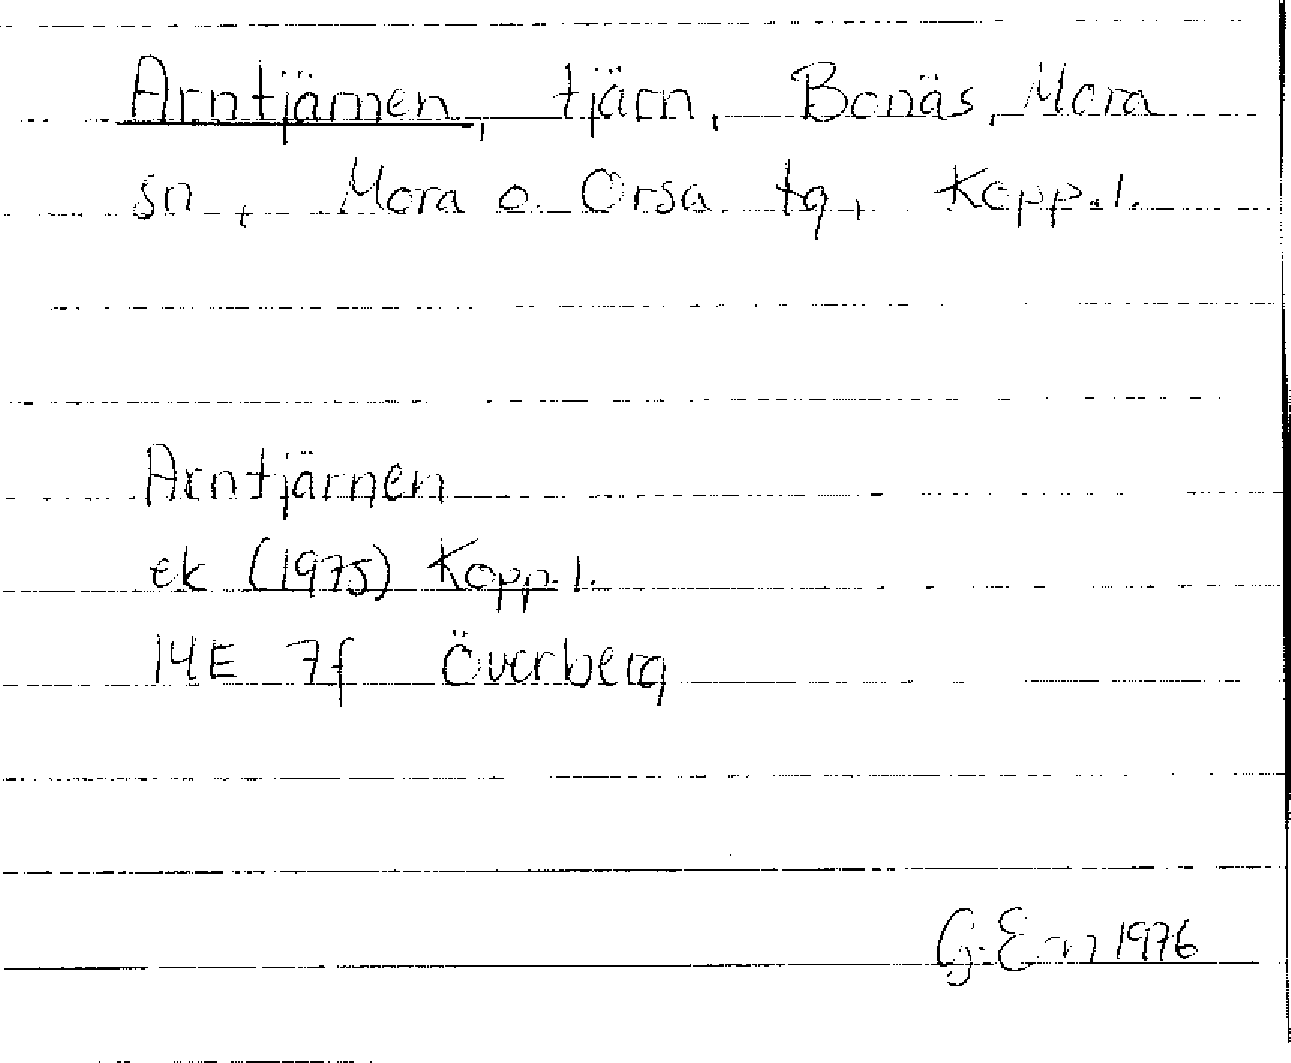 Arntjärnen, tjärn, Bonäs, Mora
sn, Mora o. Orsa tg, Kopp.l.
Arntjärnen
ek (1975) Kopp.l.
14E 7f Överberg
1976